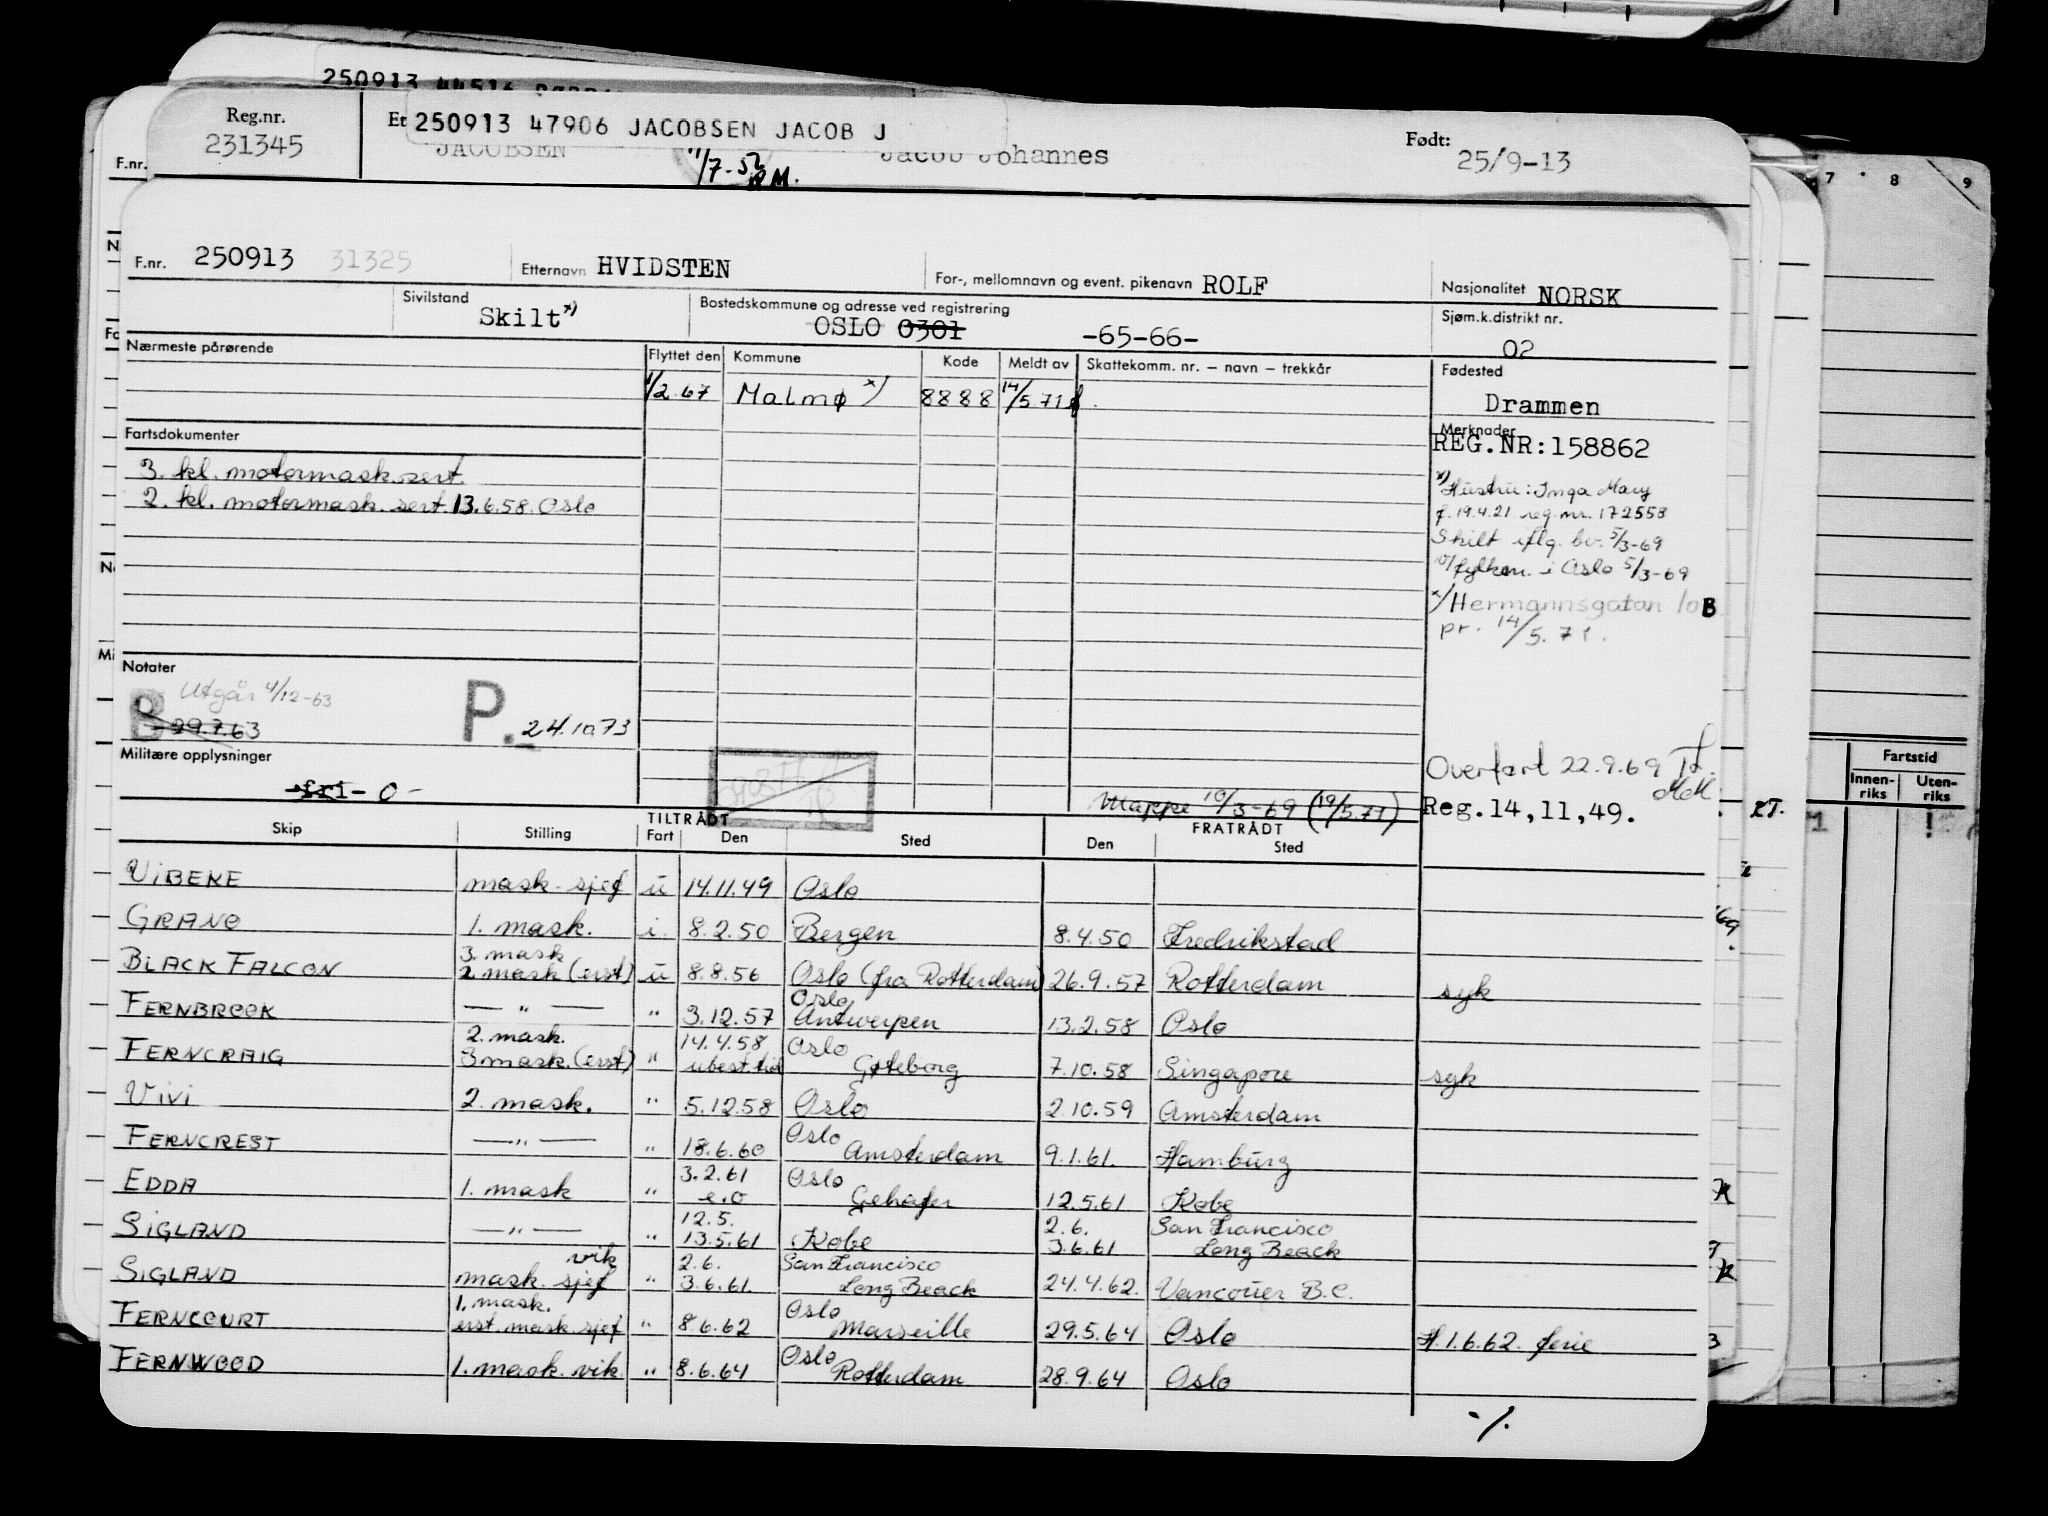 250913 44516
Reg.nr. 231345
250913 47906 JACOBSEN JACOB J
JACOBSEN Jacob Johannes
11/7-52
Født: 25/9-13
F.nr.
7 8 9
F.nr. 250913 31325 Etternavn HVIDSTEN For-, mellomnavn og event. pikenavn ROLF Nasjonalitet NORSK
Sivilstand Skilt x) Bostedskommune og adresse ved registrering OSLO 0301 -65-66- Sjøm.k.distrikt nr. 02
Nærmeste pårørende Flyttet den Kommune Kode Meldt av Skattekomm. nr. – navn – trekkår Fødested
1/2.67 Malmø x) 8888 14/5.71 Drammen
Fartsdokumenter Merknader
REG.NR:158862
3. kl. motormask.sert.
2. kl. motormask. sert. 13.6.58. Oslo
x) Hustru: Inga Mary
f. 19.4.21 reg. nr. 172558
Skilt iflg. bv. 5/3-69
fylkem. i Oslo 5/3-69
x) Hermannsgatan 10B
pr. 14/5.71.
Notater
Utgår 4/12-63
B 29.7.63 P. 24.10.73
Militære opplysninger
-fri- 0 -
Overført 22.9.69
Mappe 10/3-69 (19/5.71) Reg.14,11,49.
Fartstid
Innen-riks Uten-riks
TILTRÅDT FRATRÅDT
Skip Stilling Fart Den Sted Den Sted
VIBEKE mask.sjef u 14.11.49 Oslo
GRANO 1. mask. i. 8.2.50 Bergen 8.4.50 Fredrikstad
3. mask
BLACK FALCON 2. mask (erst) u 8.8.56 Oslo (fra Rotterdam) 26.9.57 Rotterdam syk
Oslo
FERNBROOK — " — " 3.12.57 Antwerpen 13.2.58 Oslo
2. mask. 14.4.58 Oslo
FERNCRAIG 3 mask. (erst) " ubest. tid Gøteborg 7.10.58 Singapore syk
VIVI 2. mask. " 5.12.58 Oslo 2.10.59 Amsterdam
Oslo
FERNCREST — " — " 18.6.60 Amsterdam 9.1.61. Hamburg
3.2.61 Oslo
EDDA 1. mask " e.o Gehafen 12.5.61 Kobe
12.5. 2.6. San Francisco
SIGLAND — " — " 13.5.61 Kobe 3.6.61 Long Beack
vik 2.6. San Francisco
SIGLAND mask. sjef " 3.6.61. Long Beack 24.4.62. Vancouver B.C.
1. mask. Oslo
FERNCOURT erst. mask. sjef " 8.6.62 Marseille 29.5.64 Oslo H.1.6.62. ferie
Oslo
FERNWOOD 1. mask. vik. " 8.6.64 Rotterdam 28.9.64 Oslo
-/.